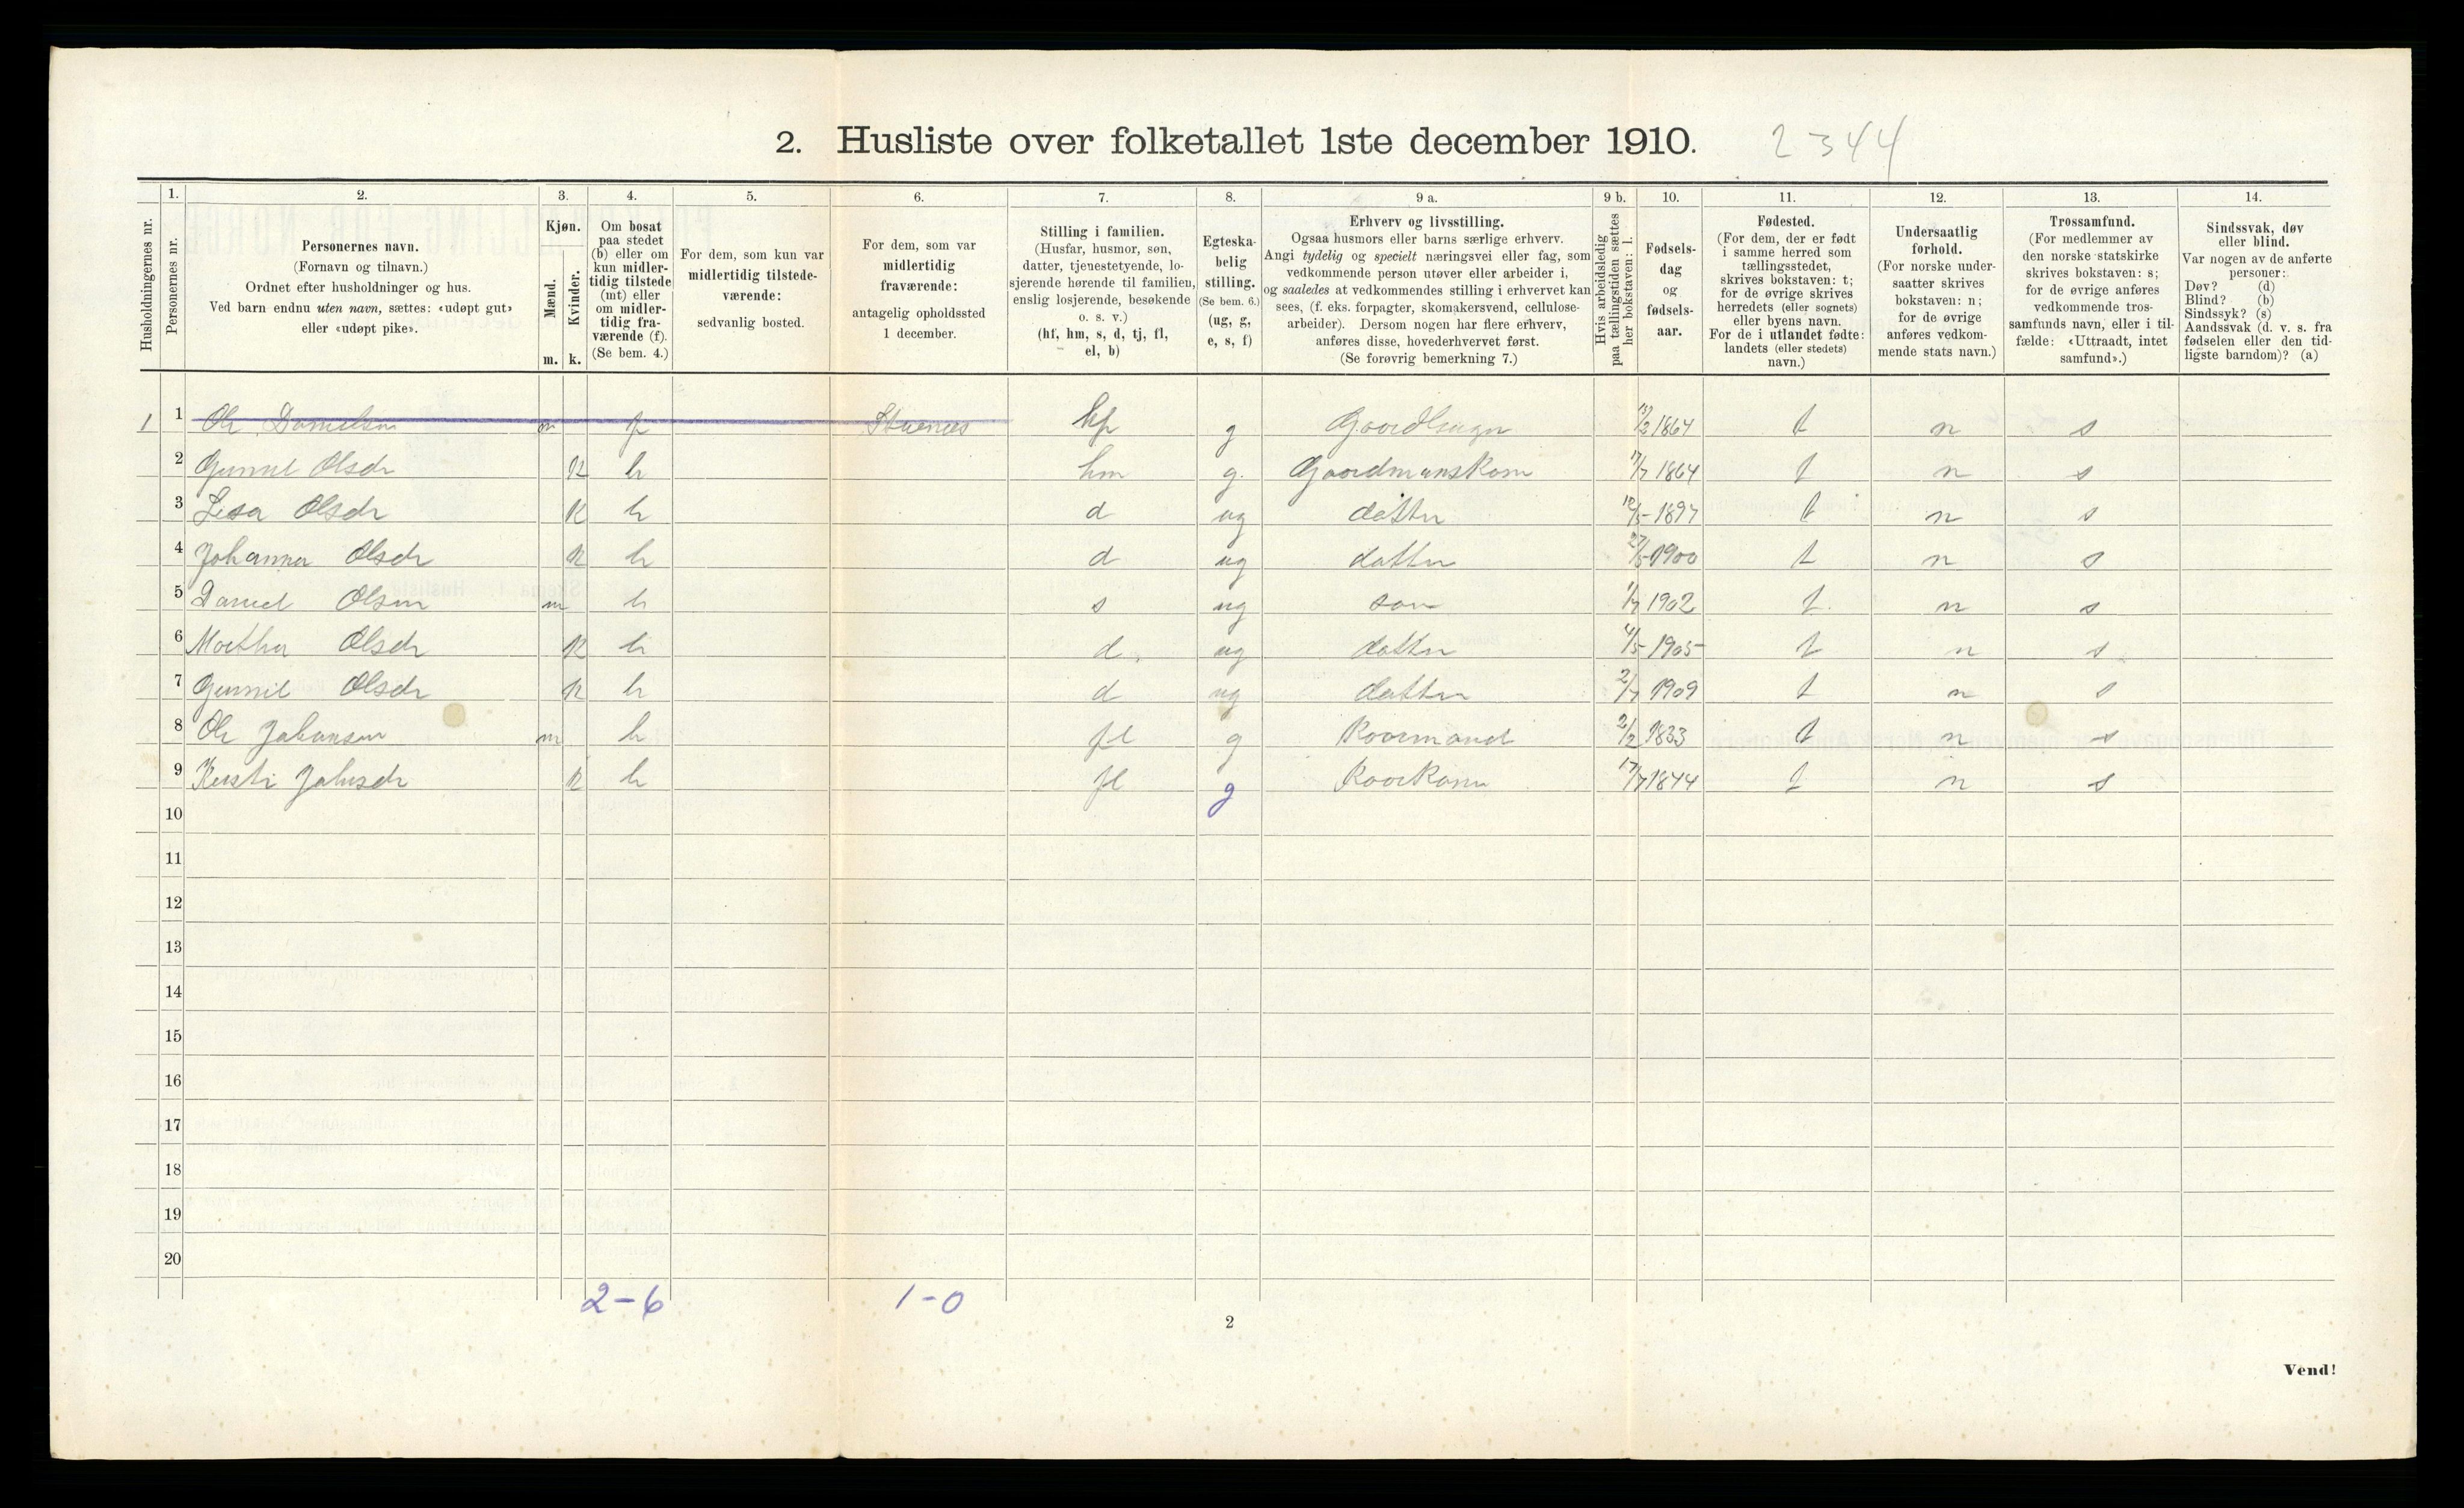 2. Husliste over folketallet 1ste december 1910. 2344
1. 2. 3. 4. 5. 6. 7. 8. 9 a. 9 b. 10. 11. 12. 13. 14.
Husholdningernes nr.
Personernes nr.
Personernes navn.
(Fornavn og tilnavn.)
Ordnet efter husholdninger og hus.
Ved barn endnu uten navn, sættes: «udøpt gut»
eller «udøpt pike».
Kjøn.
Mænd.
m.
Kvinder.
k.
Om bosat
paa stedet
(b) eller om
kun midler-
tidig tilstede
(mt) eller
om midler-
tidig fra-
værende (f).
(Se bem. 4.)
For dem, som kun var
midlertidig tilstede-
værende:
sedvanlig bosted.
For dem, som var
midlertidig
fraværende:
antagelig opholdssted
1 december.
Stilling i familien.
(Husfar, husmor, søn,
datter, tjenestetyende, lo-
sjerende hørende til familien,
enslig losjerende, besøkende
o. s. v.)
(hf, hm, s, d, tj, fl,
el, b)
Egteska-
belig
stilling.
(Se bem. 6.)
(ug, g,
e, s, f)
Erhverv og livsstilling.
Ogsaa husmors eller barns særlige erhverv.
Angi tydelig og specielt næringsvei eller fag, som
vedkommende person utøver eller arbeider i,
og saaledes at vedkommendes stilling i erhvervet kan
sees, (f. eks. forpagter, skomakersvend, cellulose-
arbeider). Dersom nogen har flere erhverv,
anføres disse, hovederhvervet først.
(Se forøvrig bemerkning 7.)
Hvis arbeidsledig
paa tællingstiden sættes
her bokstaven: l.
Fødsels-
dag
og
fødsels-
aar.
Fødested.
(For dem, der er født
i samme herred som
tællingsstedet,
skrives bokstaven: t;
for de øvrige skrives
herredets (eller sognets)
eller byens navn.
For de i utlandet fødte:
landets (eller stedets)
navn.)
Undersaatlig
forhold.
(For norske under-
saatter skrives
bokstaven: n;
for de øvrige
anføres vedkom-
mende stats navn.)
Trossamfund.
(For medlemmer av
den norske statskirke
skrives bokstaven: s;
for de øvrige anføres
vedkommende tros-
samfunds navn, eller i til-
fælde: «Uttraadt, intet
samfund».)
Sindssvak, døv
eller blind.
Var nogen av de anførte
personer:
Døv? (d)
Blind? (b)
Sindssyk? (s)
Aandssvak (d. v. s. fra
fødselen eller den tid-
ligste barndom)? (a)
1 1 Ole Danielsen m f hf g 1864 t n s
2 Gunnil Olsdr k b hm g. Gaardmanskone 17/7 1864 t n s
3 Lesa Olsdr k b d ug datter 1897 t n s
4 Johanna Olsdr k b d ug datter 27/5 1900 t n s
5 Daniel Olsen m b s ug son 1/7 1902 t n s
6 Martha Olsdr k b d ug datter 4/5 1905 t n s
7 Gunnil Olsdr k b d ug datter 2/7 1909 t n s
8 Ole Johansen m b fl g Kaarmand 2/2 1833 t n s
9 Kersti Johnsdr k b fl g Kaarkone 17/7 1844 t n s
10
11
12
13
14
15
16
17
18
19
20
2-6 1-0
2
Vend!